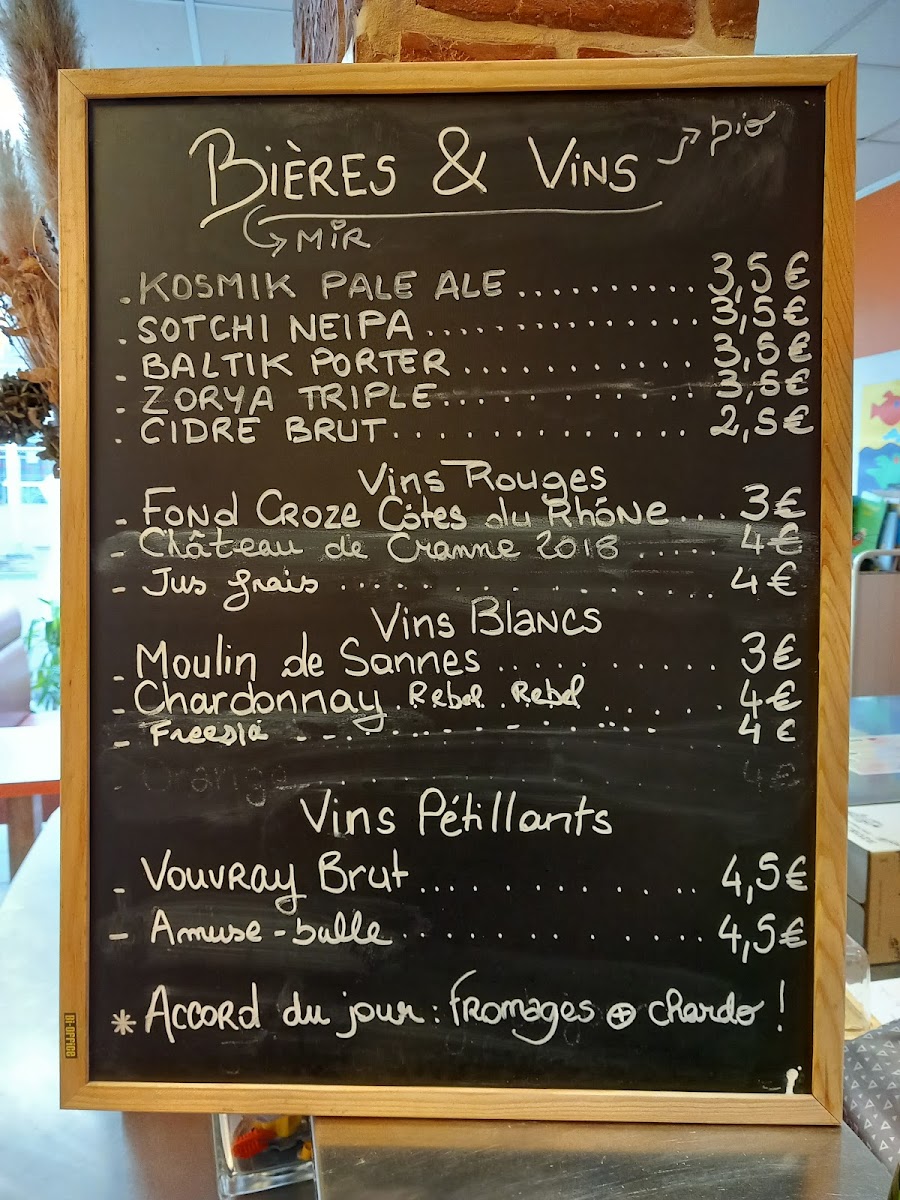 BIÈRES & VINS → bio
↪ MIR
- KOSMIK PALE ALE .......... 3,5 €
- SOTCHI NEIPA .............. 3,5 €
- BALTIK PORTER ........... 3,5 €
- ZORYA TRIPLE ............ 3,5 €
- CIDRE BRUT .............. 2,5 €
Vins Rouges
- FOND CROZE Côtes du Rhône ... 3 €
- Château de Cranne 2018 ..... 4 €
- Jus frais .............. 4 €
Vins BLANCS
- Moulin de Sannes .......... 3 €
- Chardonnay . Rebel . Rebel ..... 4 €
- Freesia .............. 4 €
- Orange .............. 4 €
Vins Pétillants
- VOUVRAY Brut .............. 4,5 €
- Amuse-bulle .............. 4,5 €
* ACCORD du jour : fROMAGES ⊕ chardo !
BI-OFFICE